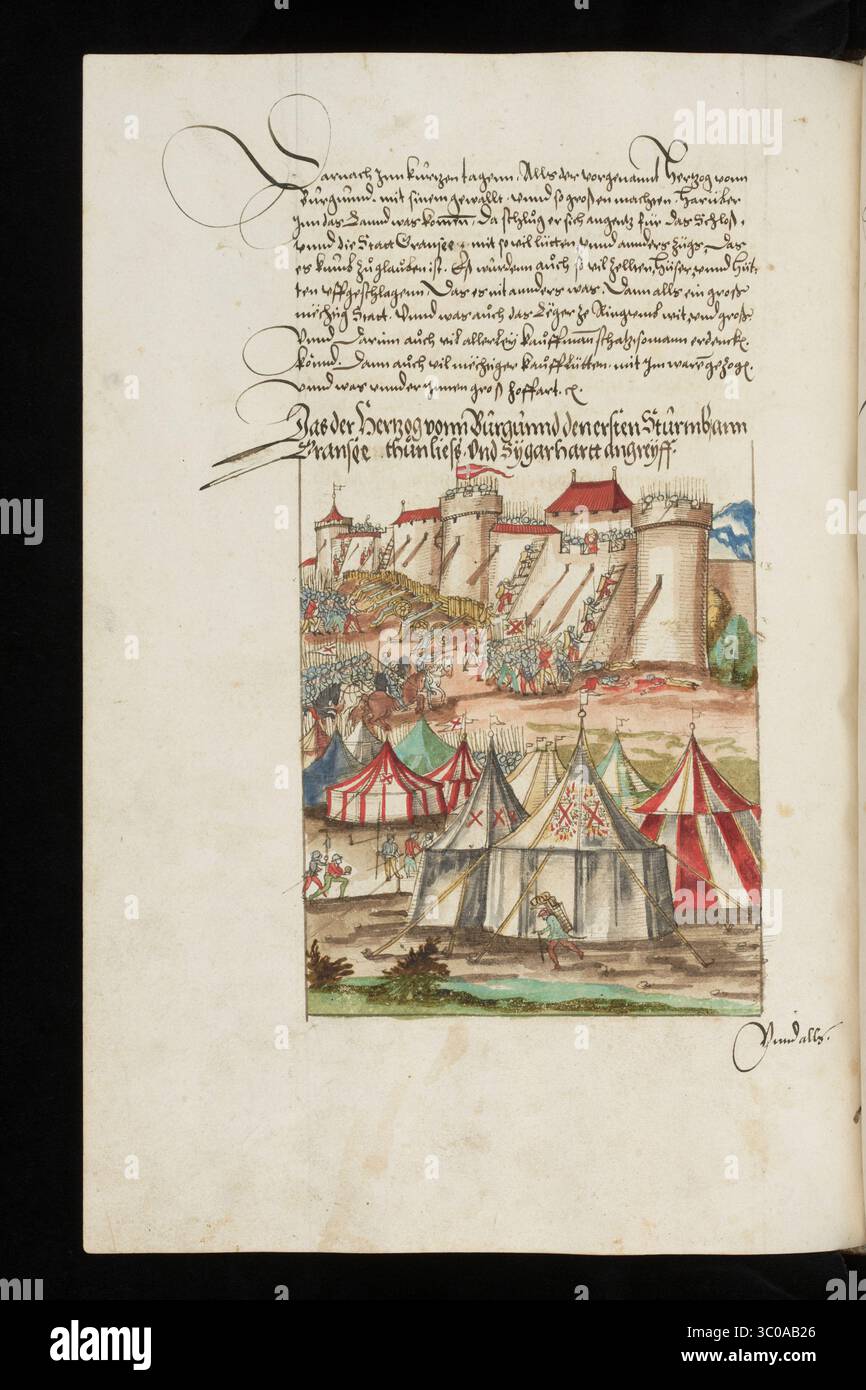 Darnach Inn kurtzen tagenn. Alls der vorgenannt Hertzog vonn
Burgund. mit sinem gewallt. vnnd so großen machten. harüber
Inn das Lannd was kommen, Da schlug er sich angentz für das Schloß.
vnnd die Statt Gransee. mit so vil lütten, vnnd annders zügs, Das
es kumb zuglauben ist. Eß wurdenn auch so vil zellten, Hüser, vnnd Hüt-
ten vffgeschlagenn. Das es nit annders was. Dann alls ein große
mechtig Statt. Vnnd was auch das Leger ze Ringwms wit, vnd groß.
Vnnd darinn auch vil allerley kauffmanschatz, so mann erdenck.
könnd. Dann auch vil mechtiger kauffLütten. mit Im waren gezog.
Vnnd was vnnder Jnnen groß hoffart. rc.
Das der Hertzog vonn Burgunnd den ersten Sturm ann
Gransee thun liess. Vnd Sy gar hartt angreyff.
Vnnd alls.
alamy
Image ID: 3C0AB26
www.alamy.com